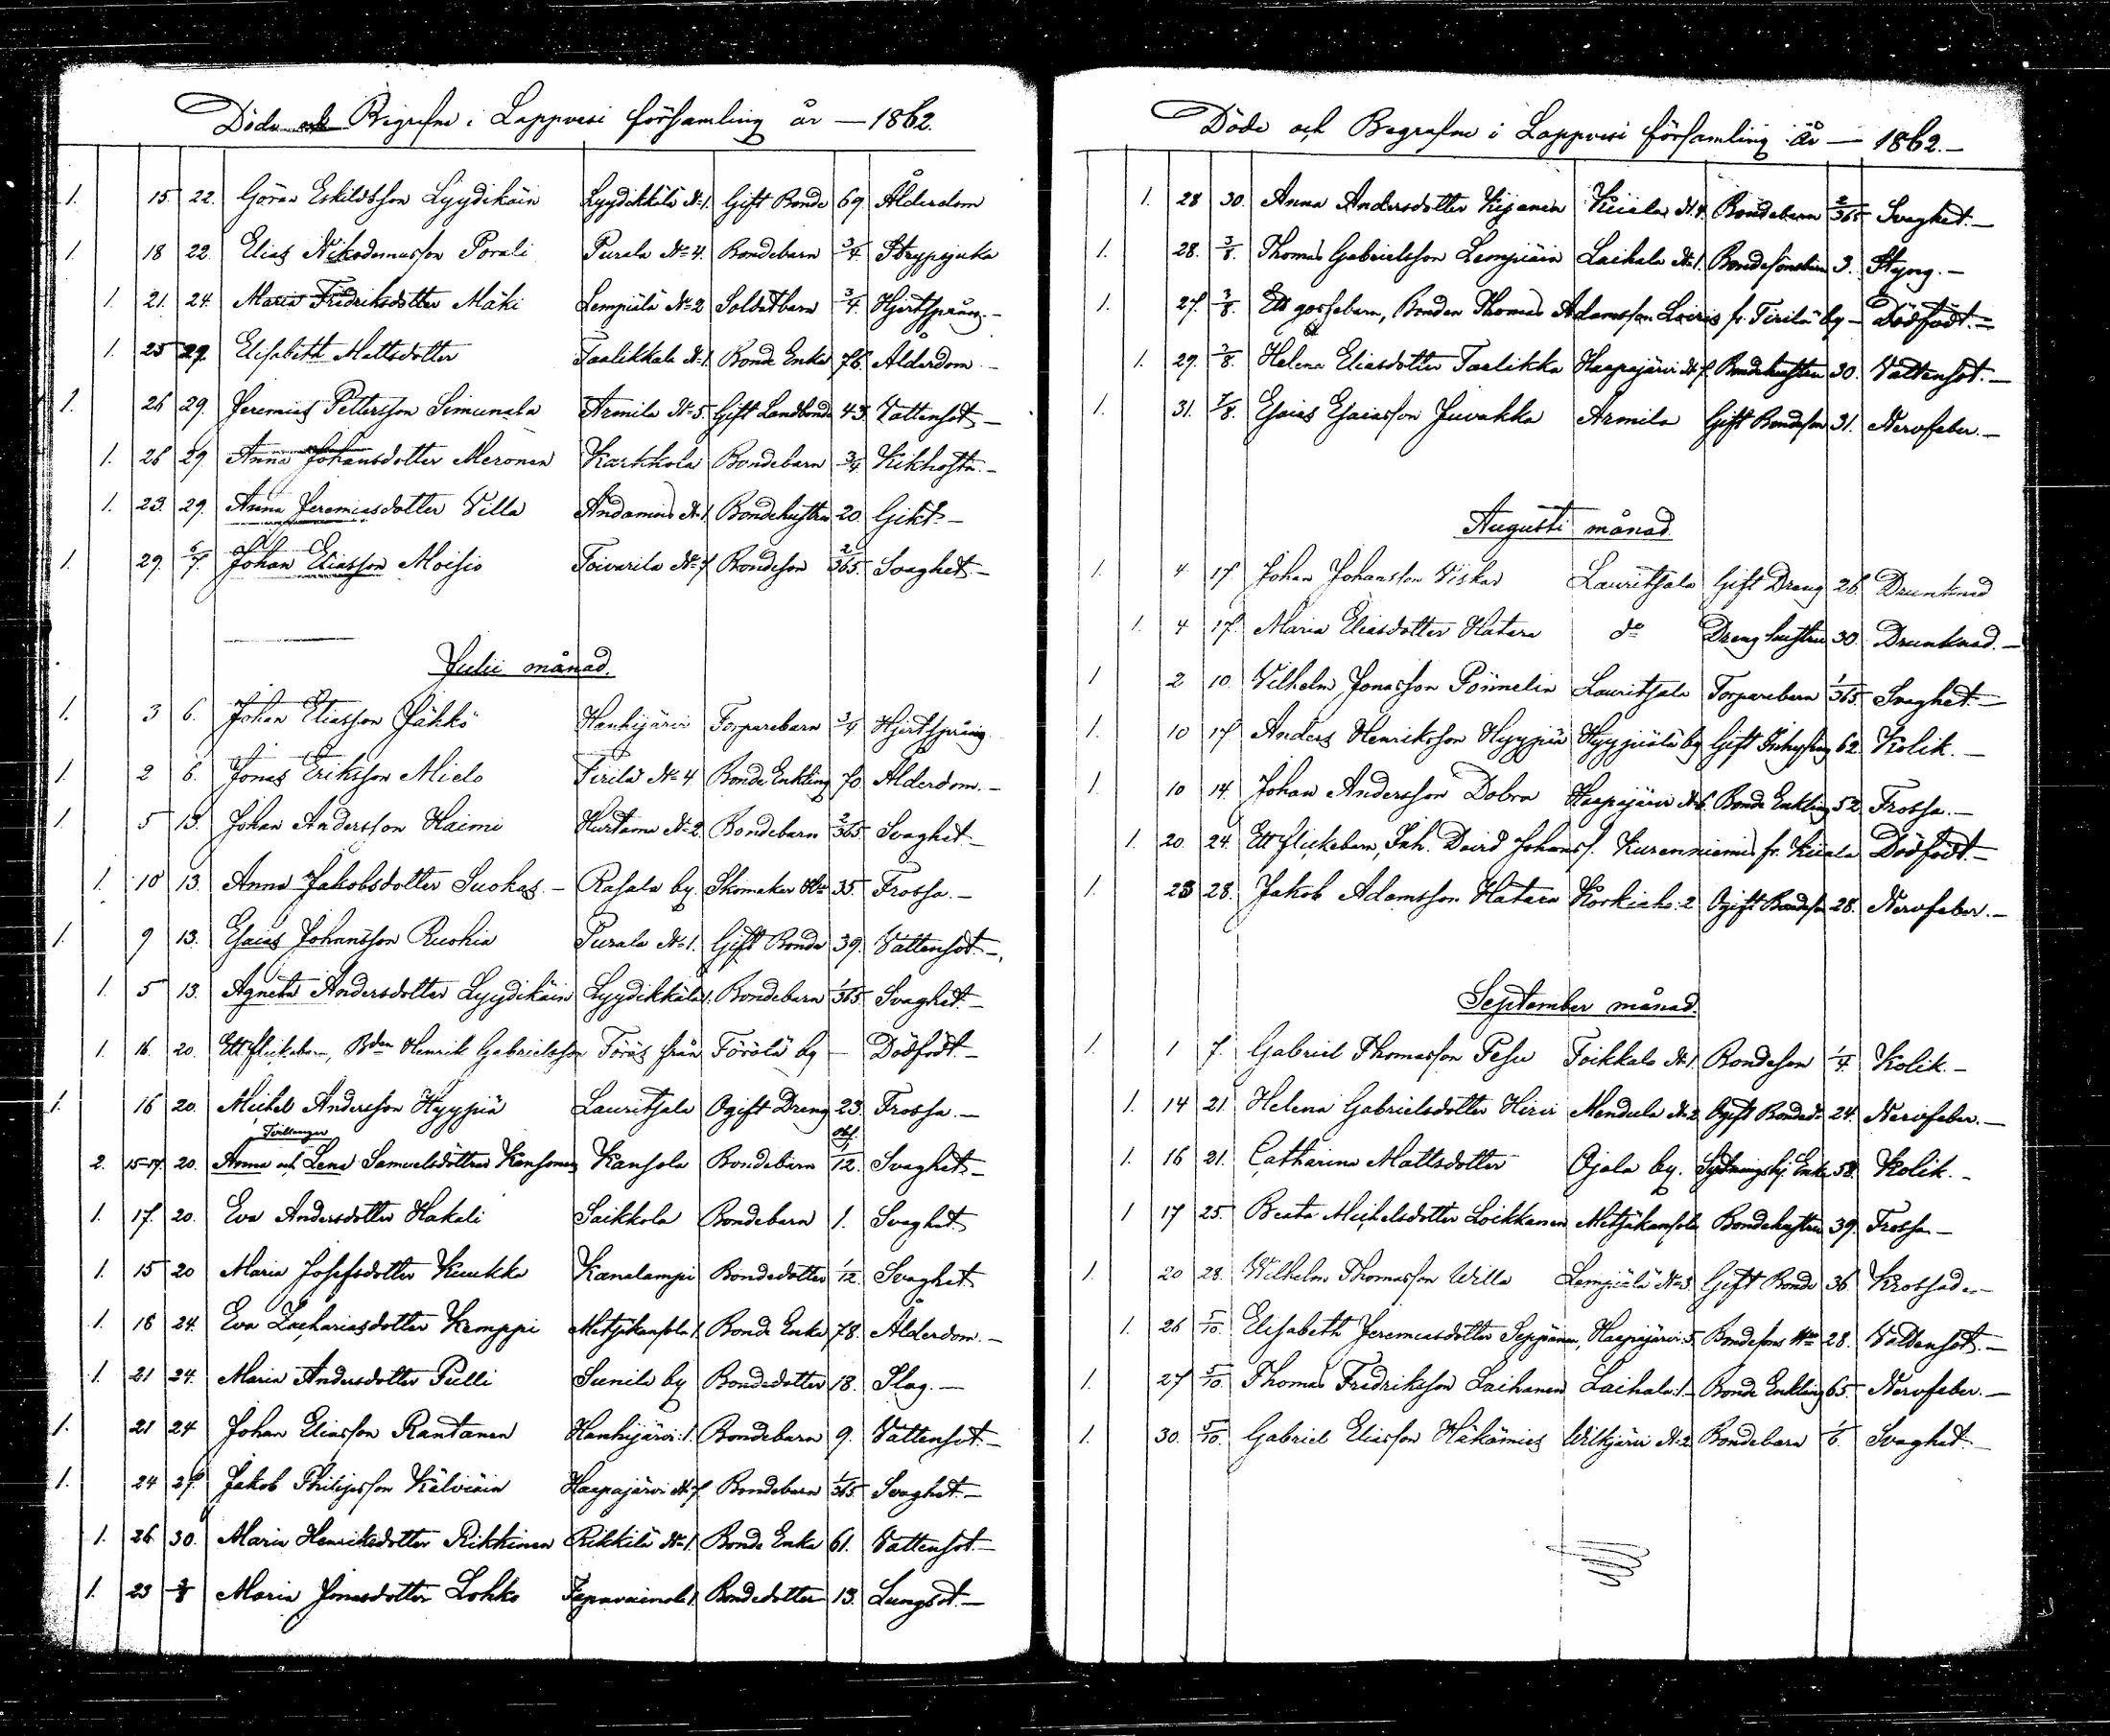 Döde och Begrafne i Lappvesi församling år — 1862.
1. 15. 22. Göran Eskildsson Lyydikäin Lyydikkälä No 1. Gift Bonde 69. Ålderdom
1. 18 22. Elias Nikodemusson Porali Purala No 4. Bondebarn 3/4. Strypsjuka
1. 21. 24. Maria Fredriksdotter Mäki Lempiälä No 2 Soldatbarn 3/4. Hjertsprång.-
1. 25 29. Elisabeth Mattsdotter Taalikkala No 1. Bonde Enka 76. Ålderdom.-
1. 26 29. Jeremias Pettersson Simunala Armila No 5. Gift Landbonde 43. Vattensot.-
1. 26 29 Anna Johansdotter Meronen Karkkola Bondebarn 3/4. Kikhosta.-
1. 23. 29. Anna Jeremiasdotter Villa No 1. Bondehustru 20. Gikt.-
1. 29. 6/7. Johan Eliasson Moisio Toivarila No 7 Bondeson 2/365. Svaghet.-
Julii månad.
1. 3 6. Johan Eliasson Jähkö Hanhijärvi Torparebarn 3/4 Hjertsprång
1. 2 6. Jonas Eriksson Mielo Tirilä No 4 Bonde Enkling 70. Ålderdom.-
1. 5 13. Johan Andersson Haimi Hurtama No 2. Bondebarn 2/365. Svaghet.-
1. 10 13. Anna Jakobsdotter Suokas.- Rasala by. Skomakar Hu 35. Frossa.-
1. 9 13. Esaias Johansson Ruohia Purala No 1. Gift Bonde 39. Vattensot.-
1. 5 13. Agneta Andersdotter Lyydikäin Lyydikkälä 1. Bondebarn 1/365. Svaghet.-
1. 16. 20. Ett flickebarn, Bden Henrik Gabrielsson Töräs från Törölä by - Dödfödt.-
1. 16 20. Michel Andersson Hyypiä Lauritsala Ogift Dreng 23. Frossa.-
Tvillingar
2. 15-17. 20. Anna och Lena Samuelsdöttrar Kansonen Kansola Bondebarn 1/12. Svaghet.-
1. 17. 20. Eva Andersdotter Hakali Saikkola Bondebarn 1. Svaghet.
1. 15 20 Maria Josefsdotter Kuukka Kanalampi Bondedotter 1/12. Svaghet.
1. 16 24. Eva Zachariasdotter Kemppi Metsäkansola 1. Bonde Enka 78. Ålderdom.-
1. 21 24. Maria Andersdotter Pulli Sunila by Bondedotter 18. Slag.-
1. 21 24 Johan Eliasson Rantanen Hanhijärvi:1. Bondebarn 9. Vattensot.-
1. 24 27. Jakob Philipsson Kälviäin Haapajärvi No 7. Bondebarn 1/365. Svaghet.-
1. 26 30. Maria Henriksdotter Rikkinen Rikkilä No 1. Bonde Enka 61. Vattensot.-
1. 23 3/8 Maria Jonasdotter Lohko Tapavainola 1. Bondedotter 13. Lungsot.-
Döde och Begrafne i Lappvesi församling år — 1862.-
1. 28 30. Anna Andersdotter Kijanen Kiiala No 4. Bondebarn 2/365. Svaghet.-
1. 28. 3/8. Thomas Gabrielsson Lempiäin Laihala No 1. 3. Styng.-
1. 27. 3/8. Ett gossebarn, Bonden Thomas Adamsson Lairis fr. Tirilä by - Dödfödt.-
1. 29. 3/8. Helena Eliasdotter Taalikka Haapajärvi No 7. Bondehustru 30. Vattensot.-
1. 31. 7/8. Esaias Esaiasson Juvakka Armila Gift Bondeson 31. Nervfeber.-
Augusti månad.
1. 4 17 Johan Johansson Viskar Lauritsala Gift Dreng 26. Drunknad
1. 4 17. Maria Eliasdotter Hatara do Dreng hustru 30. Drunknad.-
1 2 10. Vilhelm Jonasson Pönnelin Lauritsala Torparebarn 1/365. Svaghet.-
1. 10 17 Anders Henriksson Hyypiä Hyypiälä by Gift Inhysing 62. Kolik.-
1. 10 14. Johan Andersson Dobra Haapajärvi No 6. Bonde Enkling 52. Frossa.-
1. 20. 24. Ett flickebarn, Inh. David Johanss. Kurenniemis fr. Kiiala Dödfödt.-
1. 23 28. Jakob Adamsson Hatara Korkiaho:2 Ogift Bondeson 28. Nervfeber.-
September månad.
1. 1 7. Gabriel Thomasson Pesu Toikkala No 1. Bondeson 1/4. Kolik.-
1. 14 21. Helena Gabrielsdotter Hirvi No 2. Ogift Bonded. 24. Nervfeber.-
1. 16 21. Catharina Mattsdotter Ojala by. Enka 58. Kolik.-
1 17 25. Beata Michelsdotter Loikkanen Metsäkansola Bondehustru 39. Frossa.-
1. 20 28. Wilhelm Thomasson Willa Lempiälä No 3. Gift Bonde 36. Krossad.-
1. 26 5/10. Elisabeth Jeremiasdotter Seppänen, Haapajärvi:5. Bondesons Hu 28. Vattensot.-
1. 27 5/10. Thomas Fredriksson Laihanen Laihala:1. Bonde Enkling 65. Nervfeber.-
1. 30. 5/10. Gabriel Eliasson Häkämies Wilkjärvi No 2 Bondebarn 1/6. Svaghet.-